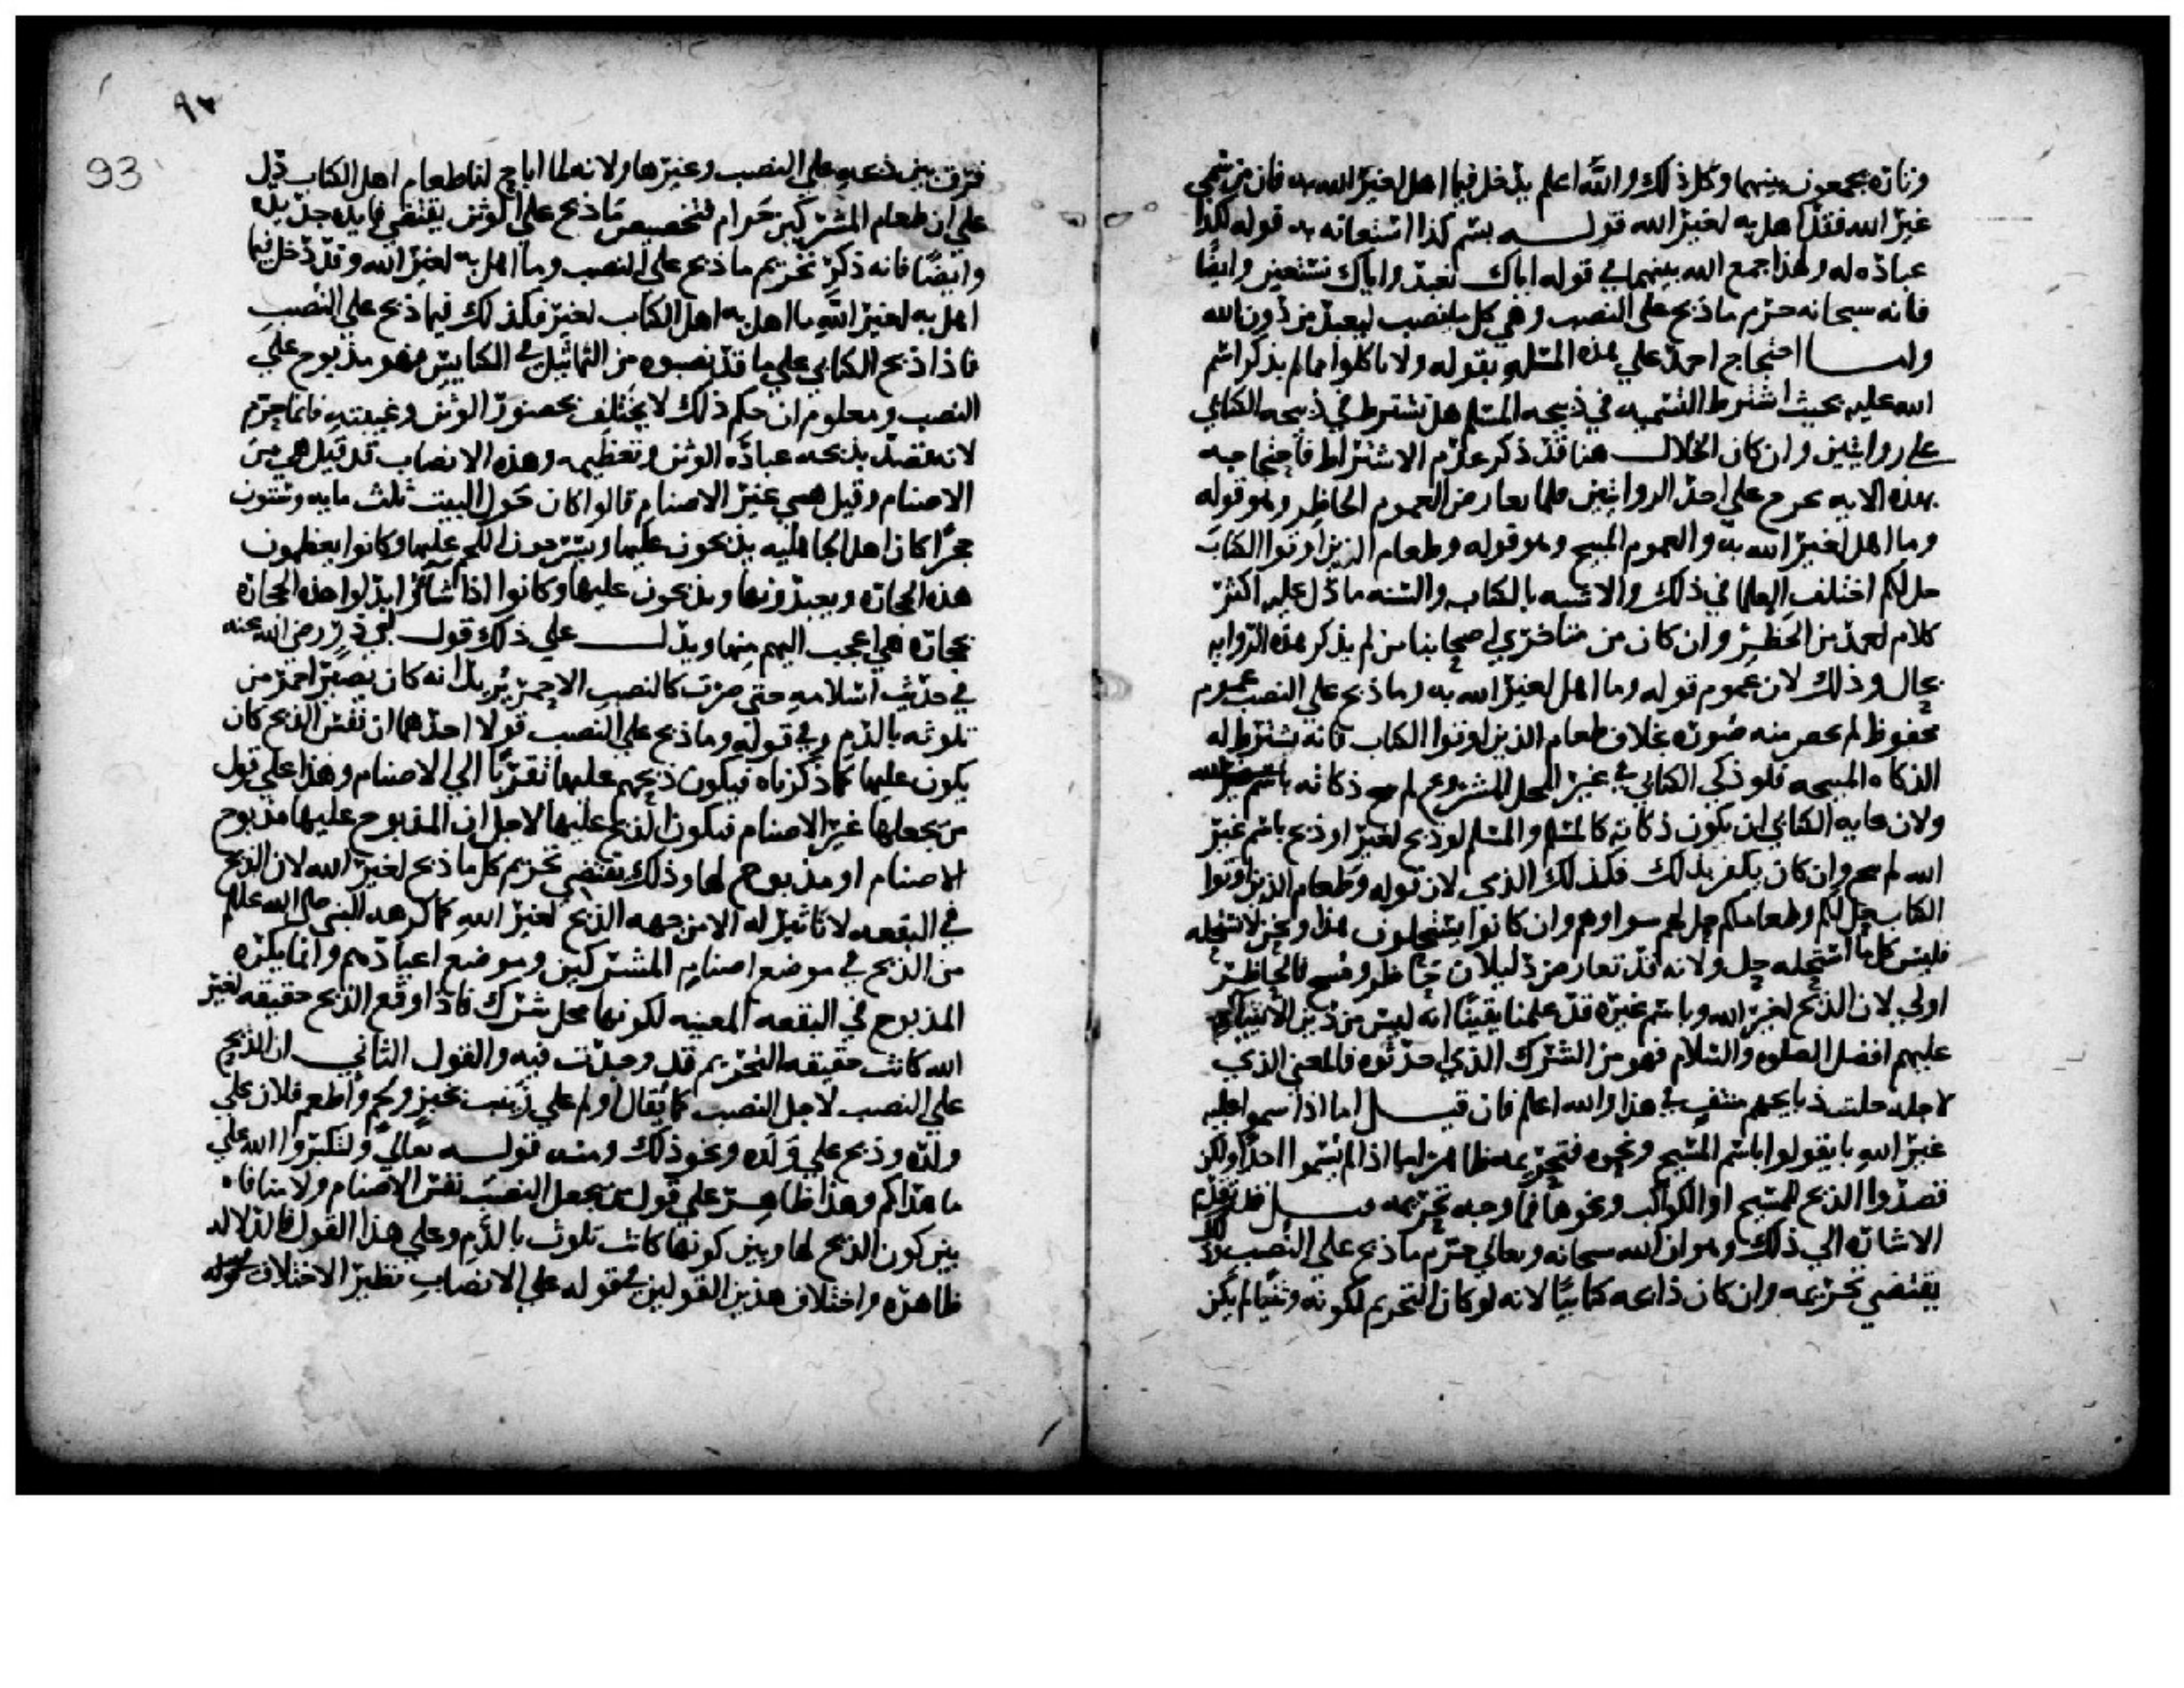 وتارة يجمعون بينهما وكل ذلك والله اعلم يدخل فيما اهل لغير الله به فان من سمى
غير الله فقد اهل به لغير الله قولـــه بسم كذا استعانه به قوله لكذا
عباده له ولهذا جمع الله بينهما في قوله اياك نعبد واياك نستعين وايضًا
فانه سبحانه حرم ما ذبح على النصب وهي كل ما نصب ليعبد من دون الله
وامـــا احتجاج احمد علي هذه المسله بقوله ولا تاكلوا مما لم يذكر اسم
الله عليه بحيث اشترط التسميه في ذبيحه المسلم هل تشترط في ذبيحه الكتابي
علي روايتين وان كان الخلال هنا قد ذكر عدم الاشتراط فاحتجاجه
بهذه الايه يخرج علي احد الروايتين فلما تعارض العموم الحاظر وهو قوله
وما اهل لغير الله به والعموم المبيح وهو قوله وطعام الذين اوتوا الكتاب
حل لكم اختلف العلما في ذلك والاشبه بالكتاب والسنه ما دل عليه اكثر
كلام احمد من الحظر وان كان من متاخري اصحابنا من لم يذكر هذه الروايه
بحال وذلك لان عموم قوله وما اهل لغير الله به وما ذبح علي النصب عموم
محفوظ لم يخص منه صوره بخلاف طعام الذين اوتوا الكتاب فانه يشترط له
الذكاه المبيحه فلو ذكى الكتابي في غير المحل المشروع لم تبح ذكاته
ولان غايه الكتابي ان يكون ذكاته كالمسلم والمسلم لو ذبح لغير او ذبح باسم غير
الله لم يبح وان كان يكفر بذلك فكذلك الذمي لان قوله وطعام الذين اوتوا
الكتاب حل لكم وطعامكم حل لهم سوا وهم وان كانوا يستحلون هذا ونحن لا نستحله
فليس كل ما استحله حل ولانه قد تعارض دليلان حاظر ومبيح فالحاظر
اولي لان الذبح لغير الله وباسم غيره قد علمنا يقينًا انه ليس من دين الانبياء
عليهم افضل الصلوه والسلام فهو من الشرك الذي احدثوه فالمعنى الذي
لاجله حلت ذبايحهم منتف في هذا والله اعلم فان قيـــل اما اذا سموا عليه
غير الله بان يقولوا باسم المسيح ونحوه فتحريمه ظاهر اما اذا لم يسموا احدا ولكن
قصدوا الذبح للمسيح او الكواكب ونحوها فما وجه تحريمه قيـــل قد تقدمت
الاشاره الي ذلك وهو ان الله سبحانه وتعالي حرم ما ذبح على النصب وذلك
يقتضي تحريمه وان كان ذابحه كتابيًا لانه لو كان التحريم لكونه وثنيًا لم يكن
٩٣
93
فرق بين ذبحه على النصب وغيرها ولانه لما اباح لنا طعام اهل الكتاب دل
علي ان طعام المشركين حرام فتخصيص ما ذبح علي الوثن يقتضي فايده جديده
وايضًا فانه ذكر تحريم ما ذبح على النصب وما اهل به لغير الله وقد دخل فيما
اهل به لغير الله ما اهل به اهل الكتاب لغير فكذلك فيما ذبح علي النصب
فاذا ذبح الكتابي علي ما قد نصبوه من التماثيل في الكنايس فهو مذبوح علي
النصب ومعلوم ان حكم ذلك لا يختلف بحضور الوثن وغيبته فانما حرم
لانه قصد بذبحه عباده الوثن وتعظيمه وهذه الانصاب قد قيل هي من
الاصنام وقيل هي غير الاصنام قالوا كان حول البيت ثلث مايه وستون
حجرًا كان اهل الجاهليه يذبحون عليها ويشرحون اللحم عليها وكانوا يعظمون
هذه الحجاره ويعبدونها ويذبحون عليها وكانوا اذا شاؤا ابدلوا هذه الحجاره
بحجاره هي اعجب اليهم منها ويدل علي ذلك قول ابي ذر رضي الله عنه
في حديث اسلامه حتى صرت كالنصب الاحمر يريد انه كان يصير احمر من
تلوثه بالدم وفي قوله وما ذبح علي النصب قولا احدهما ان نفس الذبح كان
يكون عليها كما ذكرناه فيكون ذبحهم عليها تقربًا الي الاصنام وهذا علي قول
من يجعلها غير الاصنام فيكون الذبح عليها لاجل ان المذبوح عليها مذبوح
للاصنام او مذبوح لها وذلك يقتضي تحريم كل ما ذبح لغير الله لان الذبح
في البقعه لا تاثير له الا من جهه الذبح لغير الله كما كرهه النبي صلى الله عليه وسلم
من الذبح في موضع اصنام المشركين وموضع اعيادهم وانما يكره
المذبوح في البقعه المعينه لكونها محل شرك فاذا وقع الذبح حقيقه لغير
الله كانت حقيقه التحريم قد وجدت فيه والقول الثاني ان الذبح
علي النصب لاجل النصب كما يقال اولم علي زينب بخبز ولحم واطعم فلان علي
ولده وذبح علي ولده ونحو ذلك ومنه قولـــه تعالي ولتكبروا الله علي
ما هداكم وهذا ظاهر علي قول من يجعل النصب نفس الاصنام ولا منافاه
بين كون الذبح لها وبين كونها كانت تلوث بالدم وعلي هذا القول فالدلاله
ظاهره واختلاف هذين القولين في قوله علي الانصاب نظير الاختلاف في قوله